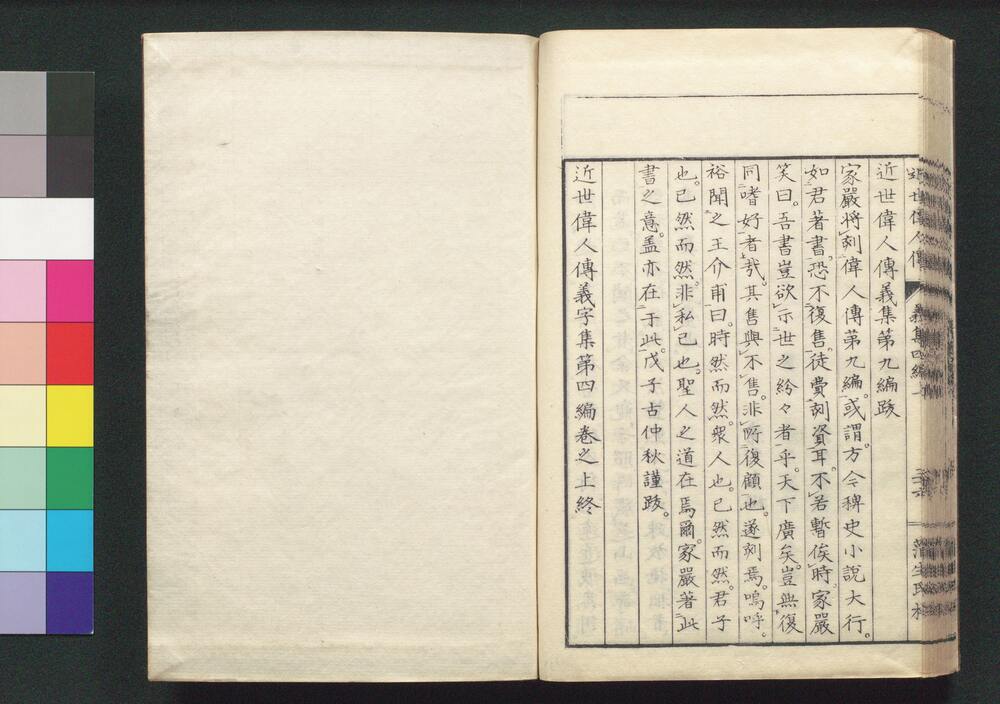 近世偉人傳義集第九編跋
家嚴將刻偉人傳第九編。或謂。方今稗史小說大行。
如君著書。恐不復售。徒費刻資耳。不若暫俟時。家嚴
笑曰。吾書豈欲示世之紛々者乎。天下廣矣。豈無復
同嗜好者哉。其售與不售。非所復顧也。遂刻焉。嗚呼。
裕聞之王介甫曰。時然而然。衆人也。已然而然。君子
也。已然而然。非私已也。聖人之道在焉爾。家嚴著此
書之意。盖亦在于此。戊子古仲秋謹跋。
近世偉人傳義字集第四編卷之上終